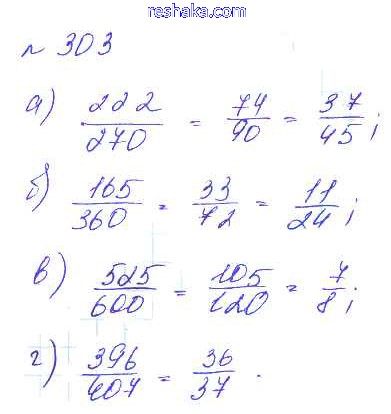 reshaka.com
№ 303
а) 222/270 = 74/90 = 37/45;
б) 165/360 = 33/72 = 11/24;
в) 525/600 = 105/120 = 7/8;
г) 396/407 = 36/37.